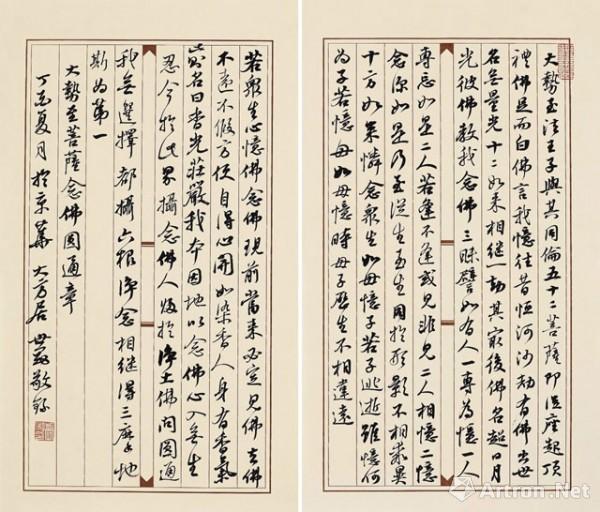 大勢至法王子與其同倫五十二菩薩即從座起頂
禮佛足而白佛言我憶往昔恒河沙劫有佛出世
名無量光十二如來相繼一劫其最後佛名超日月
光彼佛教我念佛三昧譬如有人一專為憶一人
專忘如是二人若逢不逢或見非見二人相憶二憶
念深如是乃至從生至生同於形影不相乖異
十方如來憐念眾生如母憶子若子逃逝雖憶何
為子若憶母如母憶時母子歷生不相違遠
若眾生心憶佛念佛現前當來必定見佛去佛
不遠不假方便自得心開如染香人身有香氣
此則名曰香光莊嚴我本因地以念佛心入無生
忍今於此界攝念佛人歸於淨土佛問圓通
我無選擇都攝六根淨念相繼得三摩地
斯為第一
大勢至菩薩念佛圓通章
丁亥夏月於京華 大方居 世 敬錄
Artron.Net